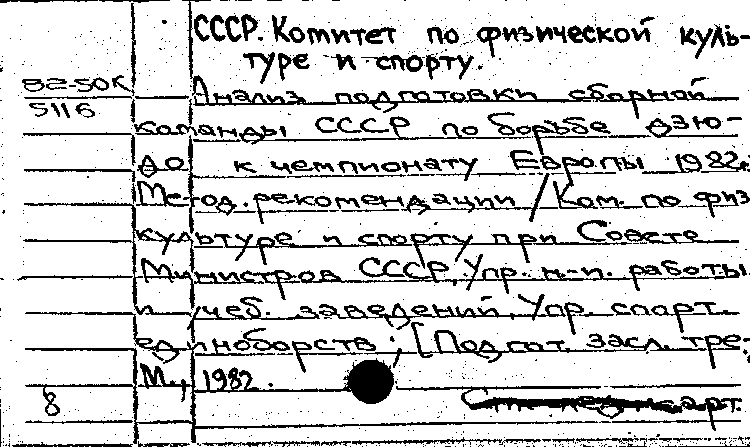 СССР. Комитет по физической куль-
туре и спорту.
82-50К
Анализ подготовки сборной
5116
команды СССР по борьбе дзю-
до к чемпионату Европы 1982г.
Метод. рекомендации / Ком. по физ
культуре и спорту при Совете
Министров СССР, Упр. н.-и. работы
и учеб. заведений, Упр. спорт.
единоборств; [Подгот. засл. тре-
М., 1982.
8